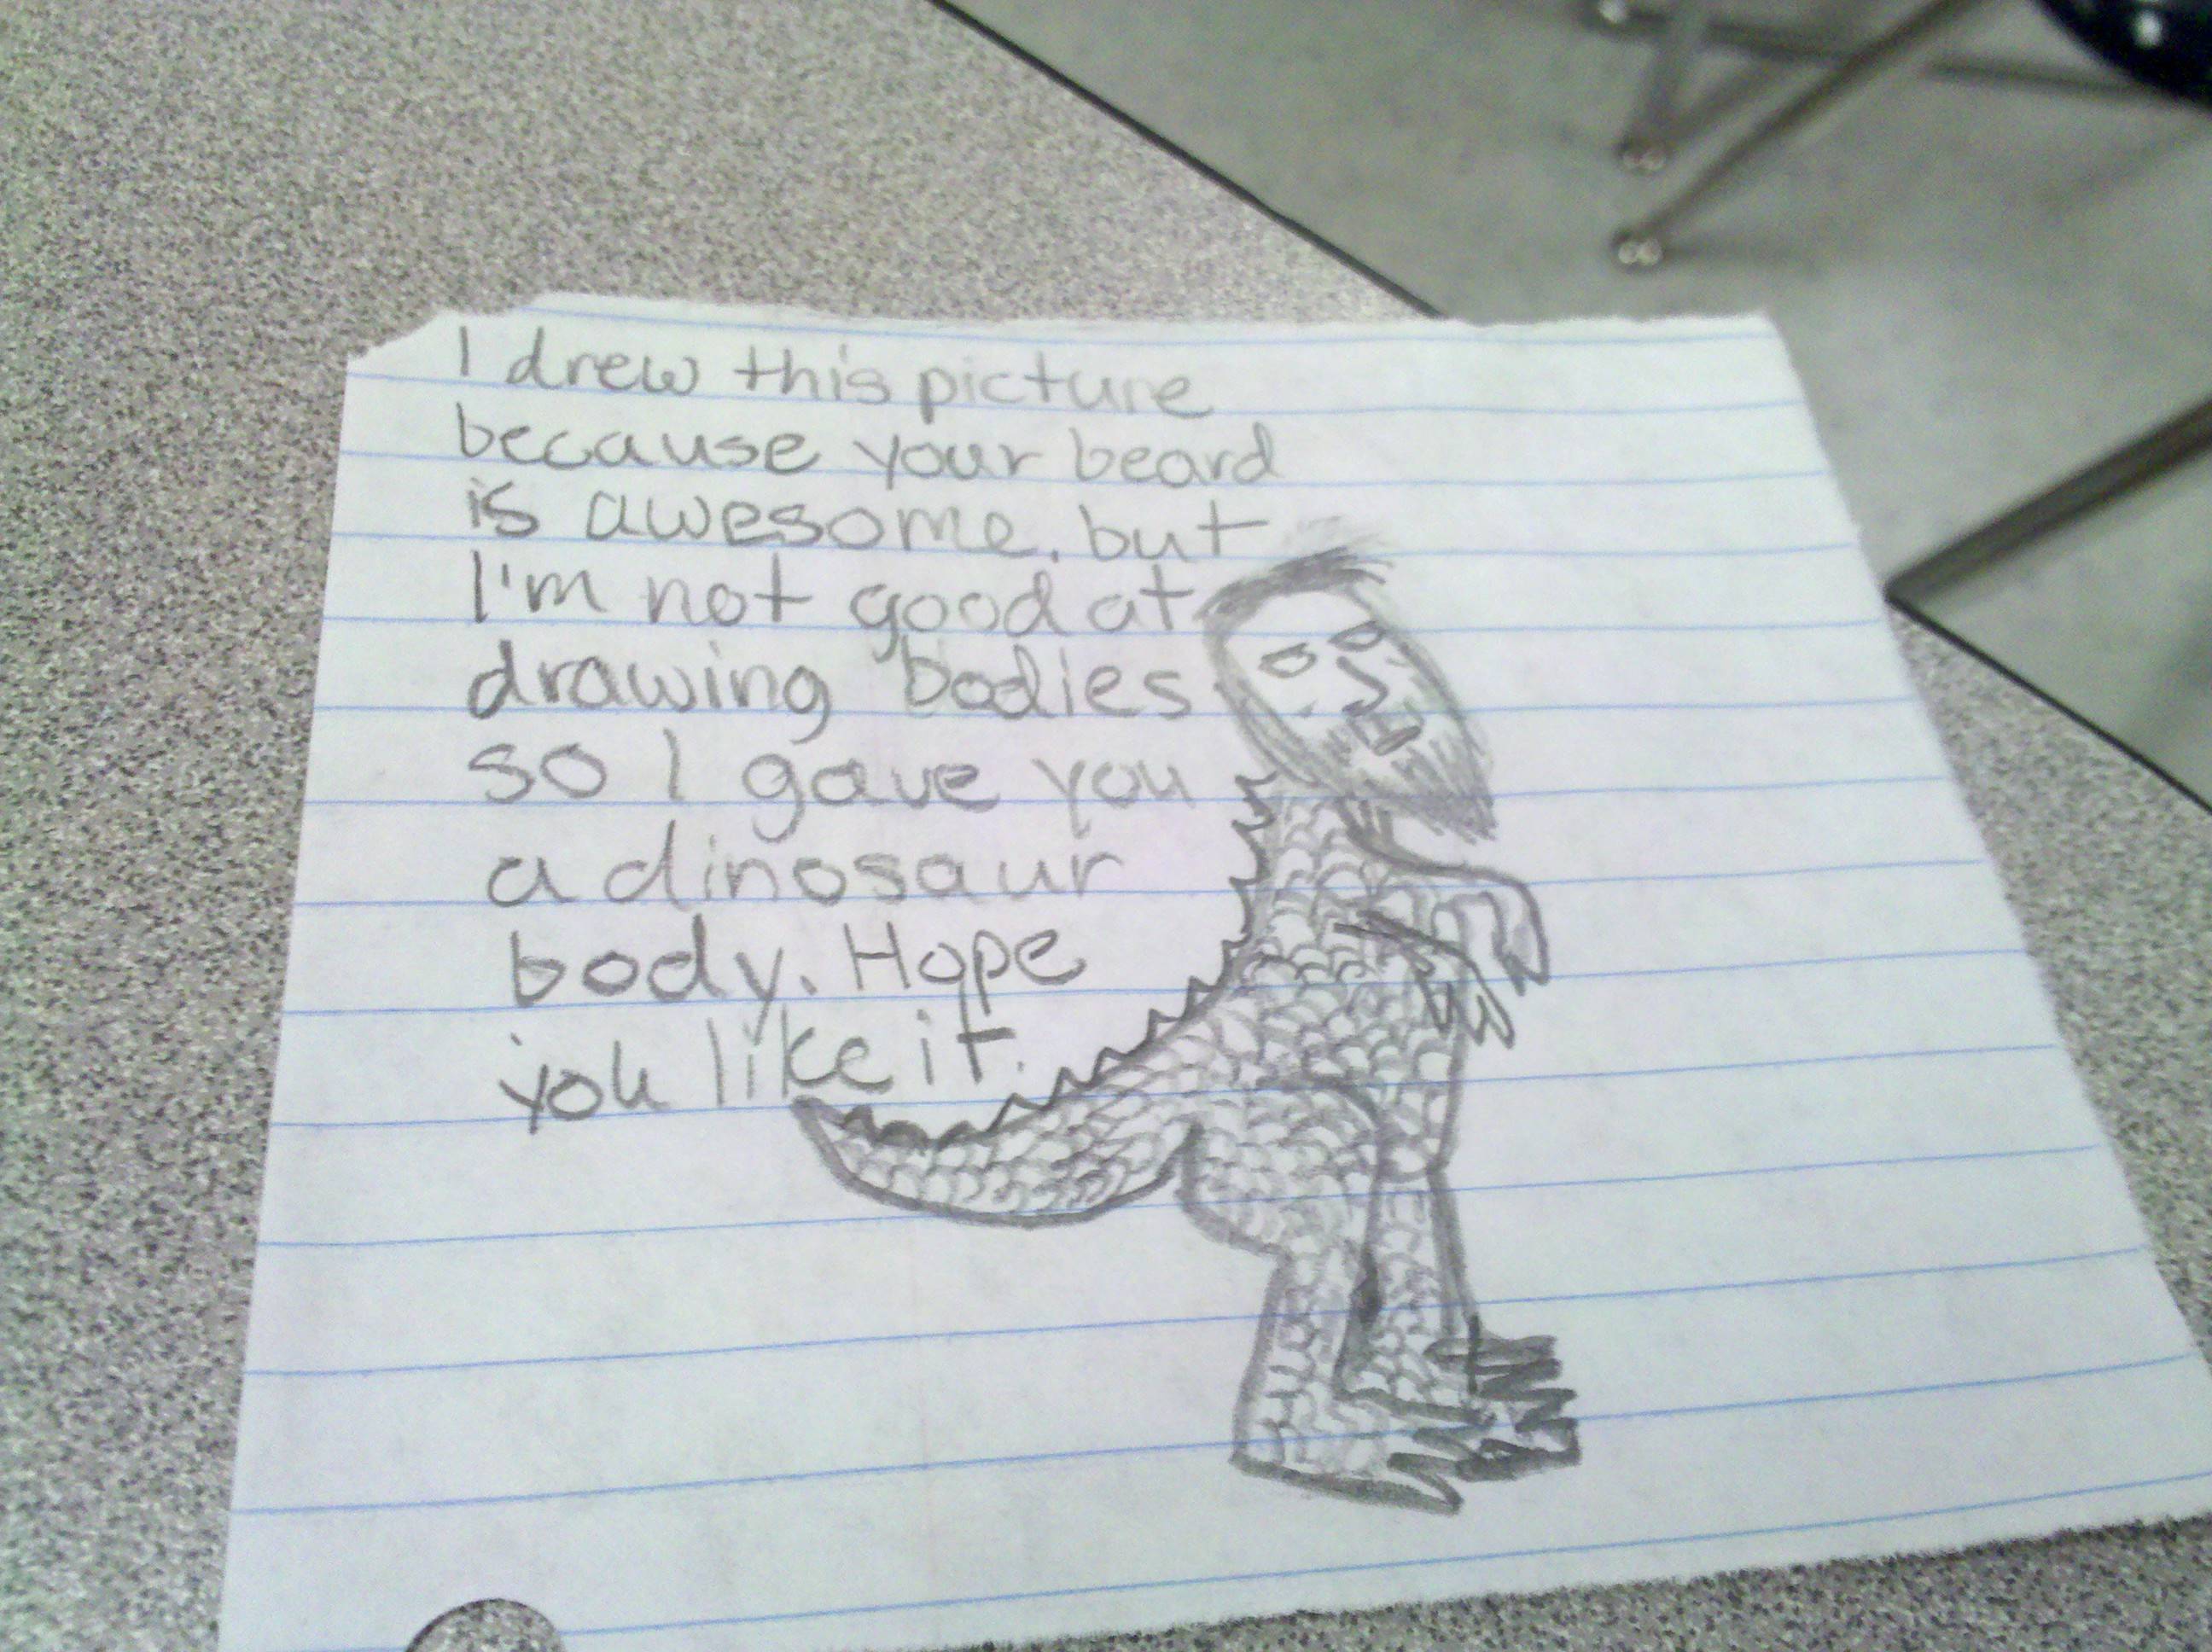 I drew this picture
because your beard
is awesome. but
I'm not good at
drawing bodies
so I gave you
a dinosaur
body. Hope
you like it.